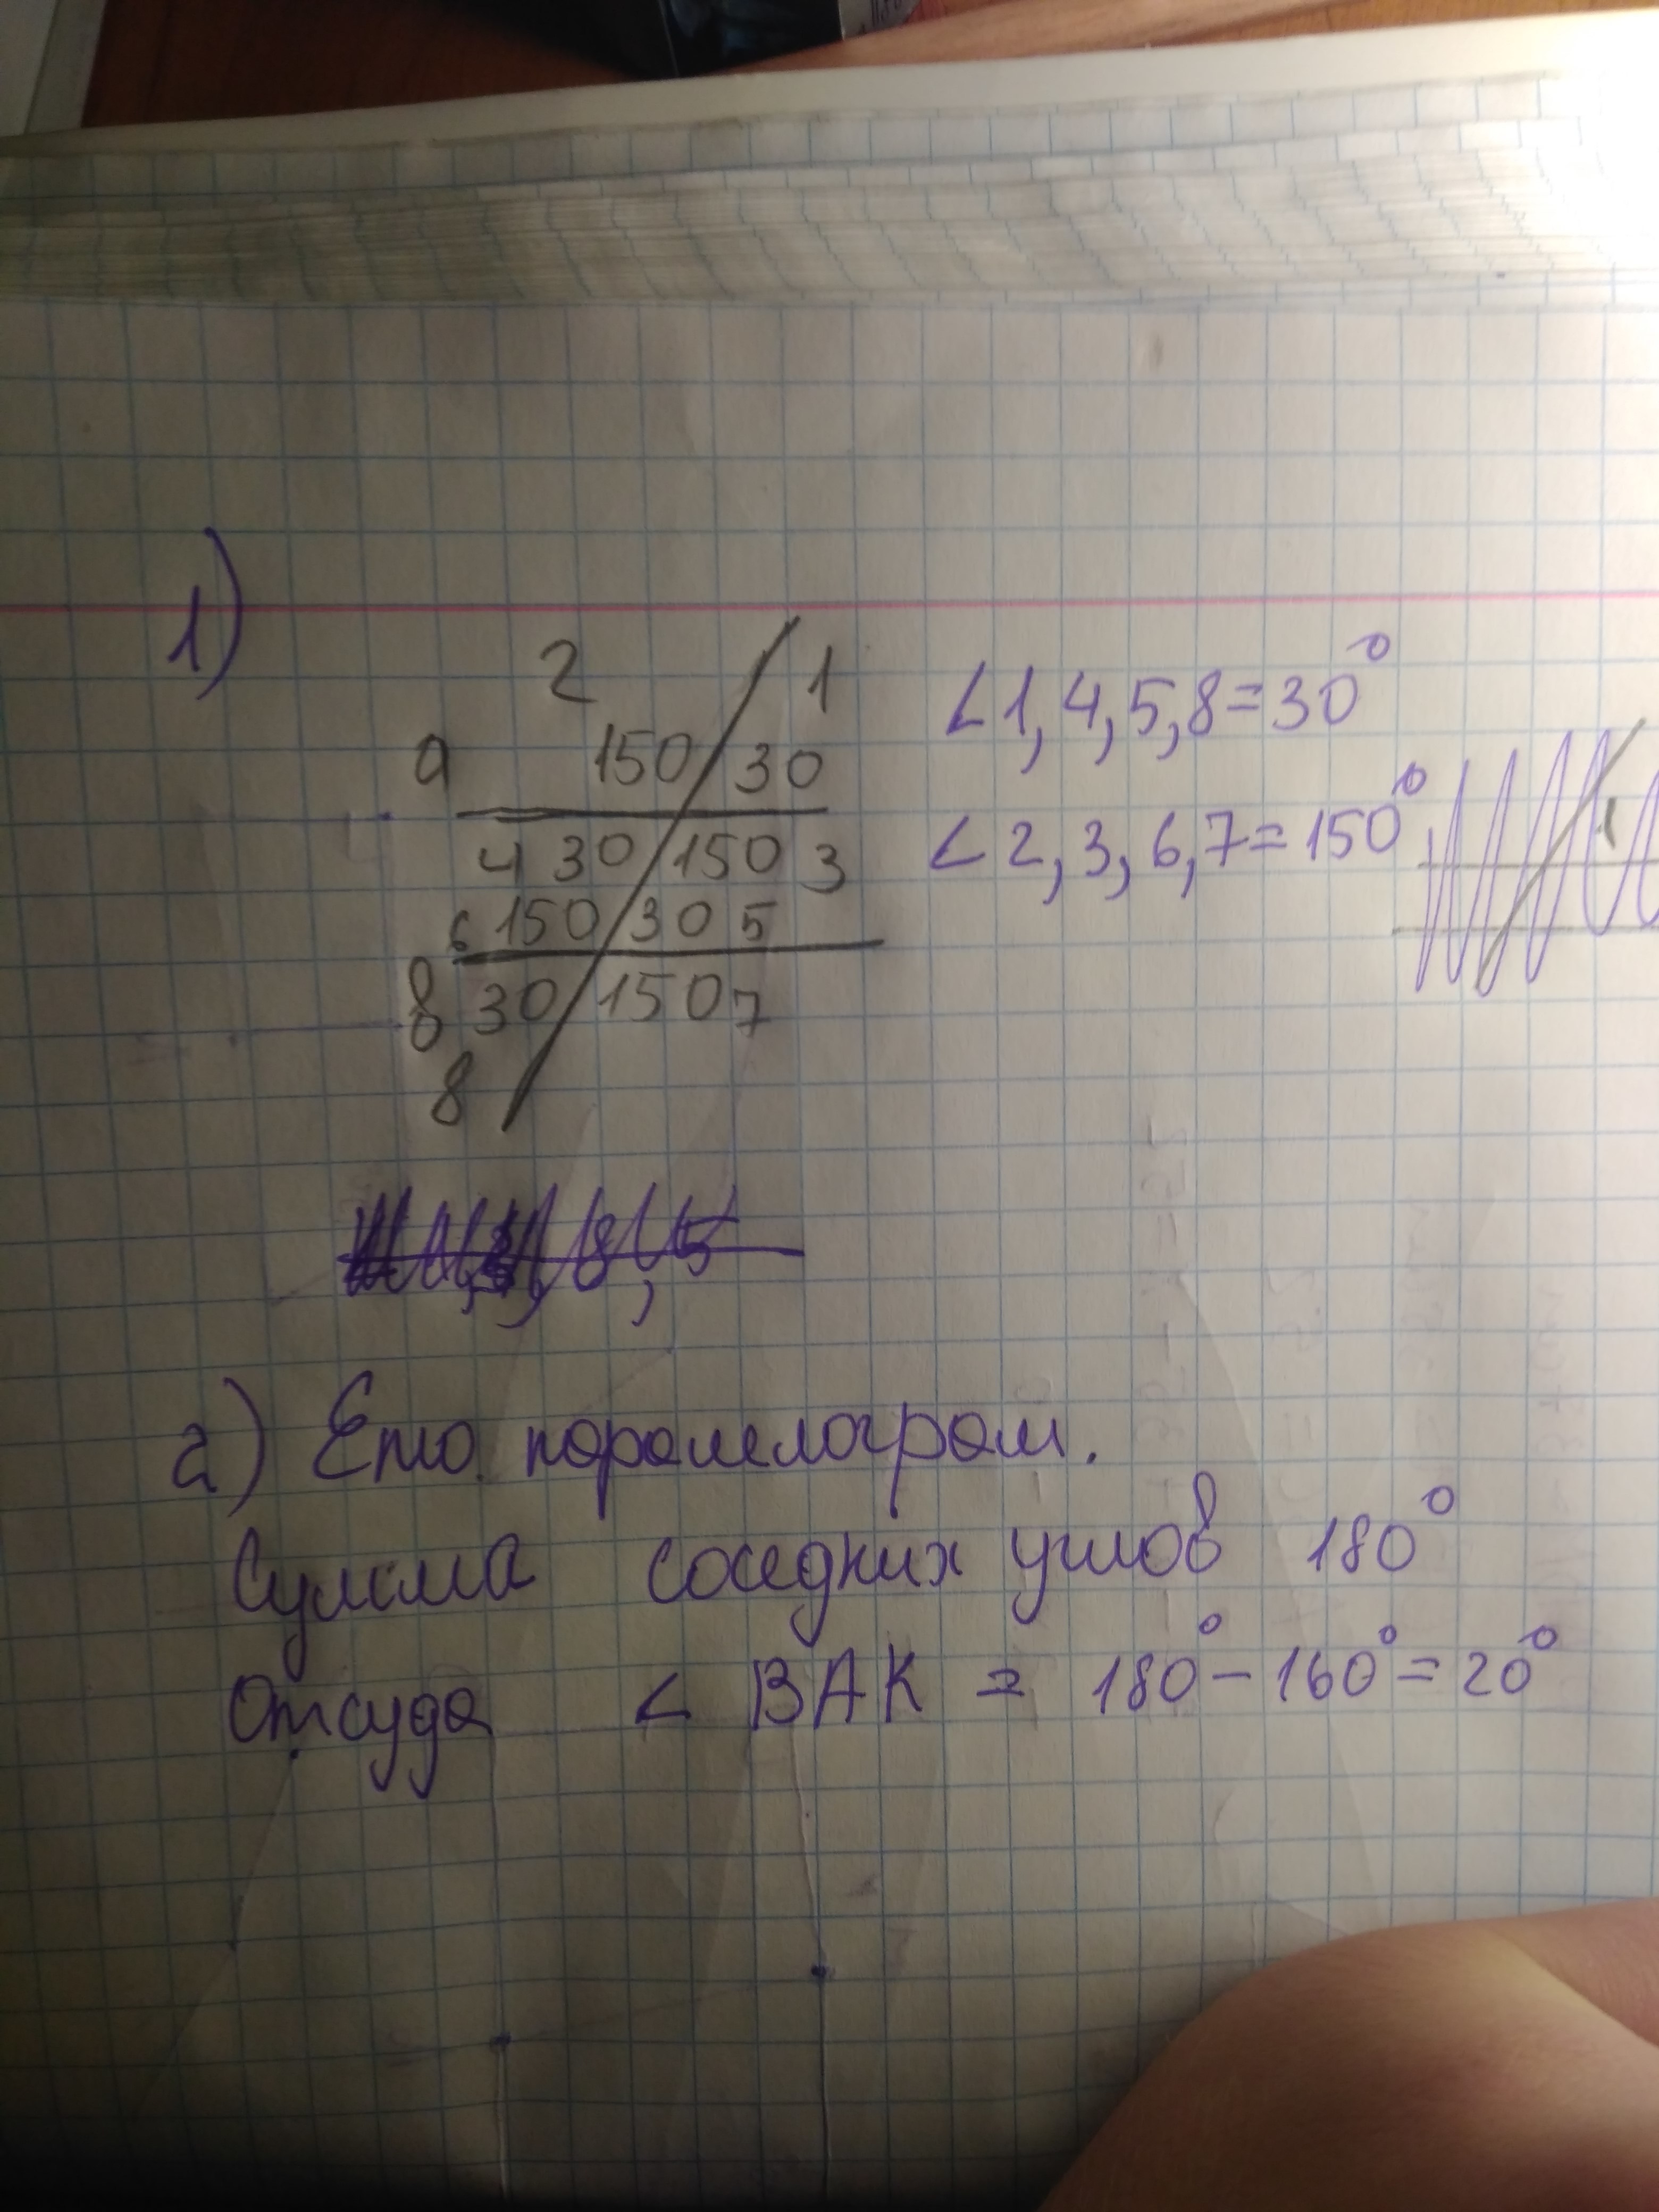 1)
2 1
а 150 30
4 30 150 3
6 150 30 5
в 30 150 7
8
∠1, 4, 5, 8 = 30°
∠2, 3, 6, 7 = 150°
2) Ето паралелограм.
Сумма соседних углов 180°
Отсуда ∠ ВАК = 180° - 160° = 20°